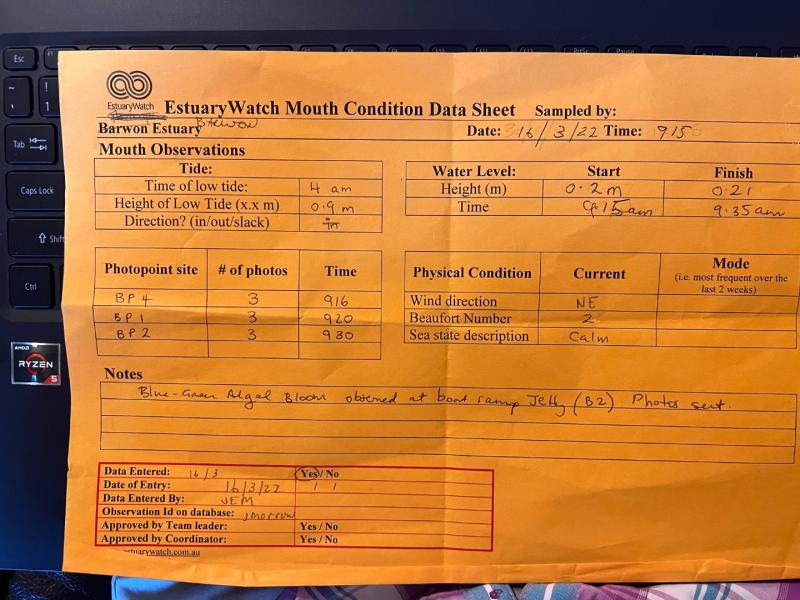 Esc
PrtSc
Pause
~
!
1
Tab
Caps Lock
Shift
Ctrl
AMD
RYZEN
5
EstuaryWatch
EstuaryWatch Mouth Condition Data Sheet Sampled by:
Barwon Estuary BARWON Date: 16/3/22 Time: 915
Mouth Observations
Tide:
Time of low tide: 4 am
Height of Low Tide (x.x m) 0.9 m
Direction? (in/out/slack) in
Water Level: Start Finish
Height (m) 0.2m 0.21
Time 9.15am 9.35am
Photopoint site # of photos Time
BP4 3 916
BP1 3 920
BP2 3 930
Physical Condition Current Mode
(i.e. most frequent over the last 2 weeks)
Wind direction NE
Beaufort Number 2
Sea state description Calm
Notes
Blue-Green Algal Bloom observed at boat ramp Jetty (B2) Photos sent.
Data Entered: 16/3 Yes / No
Date of Entry: 16/3/22 / /
Data Entered By: JEM
Observation Id on database: jmorrow
Approved by Team leader: Yes / No
Approved by Coordinator: Yes / No
estuarywatch.com.au